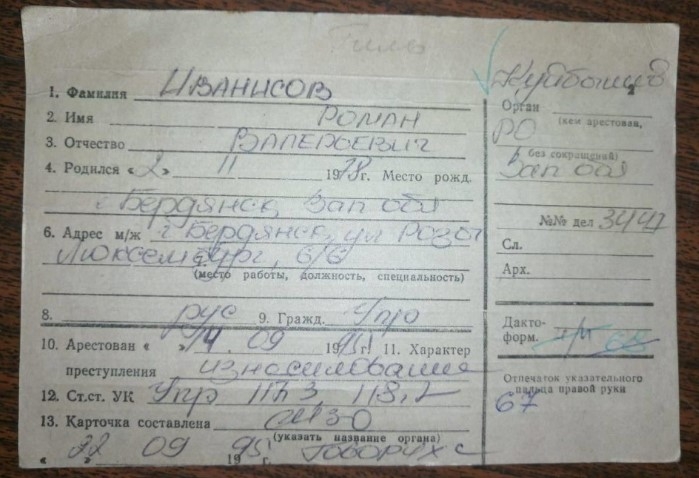 Куйбышев
1. Фамилия ИВАНИСОВ
Орган
(кем арестован,
2. Имя РОМАН
РО
3. Отчество ВАЛЕРЬЕВИЧ
без сокращений)
Зап обл
4. Родился «2» 11 1978г. Место рожд.
г Бердянск, Зап обл
№№ дел 34421
6. Адрес м/ж г. Бердянск, ул Розы
Люксембург, 6/6
7.
(место работы, должность, специальность)
Сл.
Арх.
8. рус 9. Гражд. Укр
10. Арестован « 14 . 09 1995г. 11. Характер
преступления изнасилование
Дакто-
форм.
12. Ст.ст. УК Укр 117 3, 118,2
Отпечаток указательного
пальца правой руки
67
13. Карточка составлена СИЗО
(указать название органа)
« 22 09 1995г.